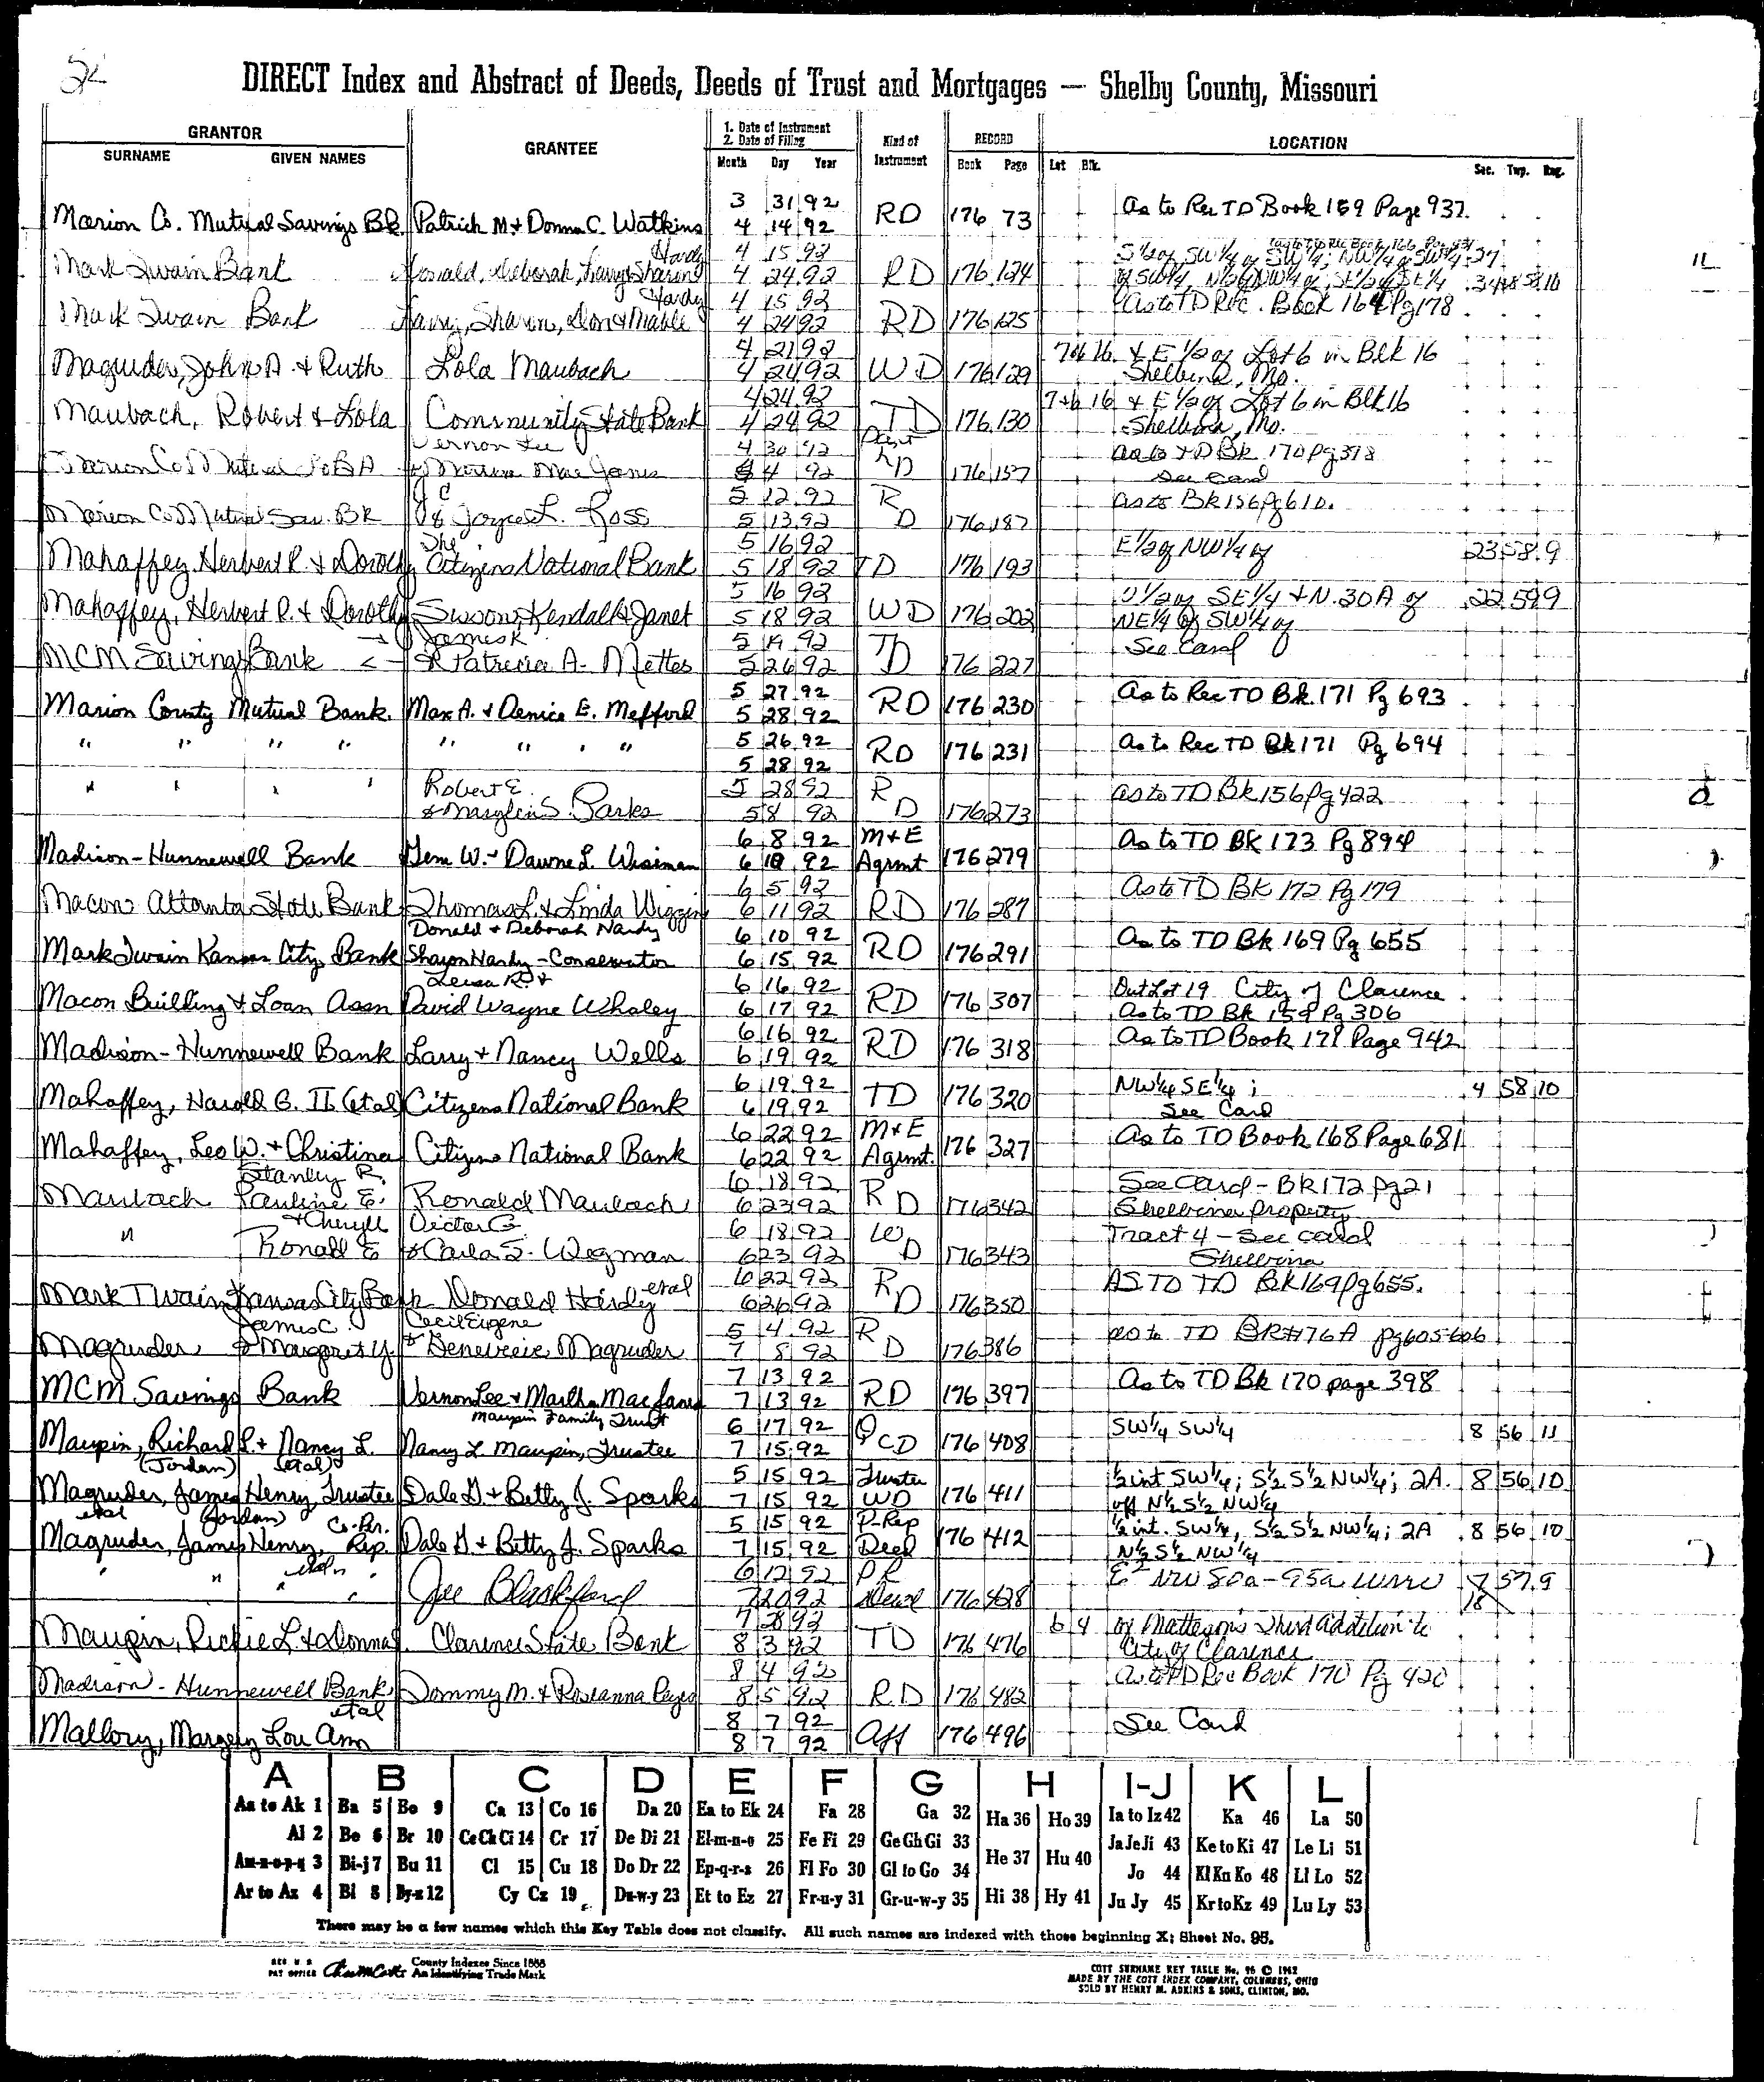 DIRECT Index and Abstract of Deeds, Deeds of Trust and Mortgages — Shelby County, Missouri
GRANTOR
SURNAME GIVEN NAMES
GRANTEE
1. Date of Instrument
2. Date of Filing
Month Day Year
Kind of Instrument
RECORD
Book Page
LOCATION
Lot Blk. Sec. Twp. Rng.
Marion Co. Mutual Savings Bk. Patrick M. + Donna C. Watkins 3 31 92 RD 176 73 As to Rec TD Book 159 Page 937
4 14 92
Mark Twain Bank Ronald, Deborah, Larry, Sharon Hardy 4 15 92 RD 176 124 S½ of SW¼ of SW¼; NW¼ of SW¼ 27
4 24 92
Mark Twain Bank Larry, Sharon, Don & Mable Hardy 4 15 92 RD 176 125 As to TD Rec. Book 164 Pg 178
4 24 92
Magruder, John A. + Ruth Lola Maubach 4 21 92 WD 176 129 7 16 & E ½ of Lot 6 in Blk 16
4 24 92 Shelbina, Mo.
Maubach, Robert & Lola Community State Bank 4 24 92 TD 176 130 7 16 & E ½ of Lot 6 in Blk 16
4 24 92 Shelbina, Mo.
Vernon Lee 4 30 92 RD 176 157 As to TD Bk 170 pg 398
See Card
Marion Co Mutual Sav. Bk & Joyce L. Ross 5 12 92 RD 176 187 As to Bk 156 pg 610.
5 13 92
Mahaffey, Herbert R. + Dorothy The Citizens National Bank 5 16 92 TD 176 193 E ½ of NW ¼ of 23 58 9
5 18 92
Mahaffey, Herbert R. + Dorothy Kendall & Janet 5 16 92 WD 176 202 SE ¼ + N. 30 A of 22 59 9
5 18 92 NE ¼ of SW ¼ of
MCM Savings Bank James R. & Patricia A. Mettes 5 19 92 TD 176 227 See Card
5 26 92
Marion County Mutual Bank. Max A. + Denice E. Mefford 5 27 92 RD 176 230 As to Rec TD Bk. 171 Pg 693
5 28 92
" " " " " " " " 5 26 92 RD 176 231 As to Rec TD Bk 171 Pg 694
5 28 92
" " " " Robert E. & S. Parks 5 28 92 RD 176 273 As to TD Bk 156 pg 422
5 8 92
Madison-Hunnewell Bank W. + Dawne L. Wiseman 6 8 92 M+E Agrmt 176 279 As to TD BK 173 Pg 894
6 10 92
Macon Atlanta State Bank Thomas L. & Linda Wiggins 6 5 92 RD 176 287 As to TD Bk 172 Pg 179
6 11 92
Mark Twain Kansas City Bank Donald + Deborah Hardy 6 10 92 RD 176 291 As to TD Bk 169 Pg 655
Sharon Hardy - Conservator 6 15 92
Macon Building & Loan Assn David Wayne Whaley 6 16 92 RD 176 307 Out Lot 19 City of Clarence
6 17 92 As to TD Bk 159 Pg 306
Madison-Hunnewell Bank Larry + Nancy Wells 6 16 92 RD 176 318 As to TD Book 171 Page 942
6 19 92
Mahaffey, Harold G. II (etal) Citizens National Bank 6 19 92 TD 176 320 NW¼ SE¼; 4 58 10
6 19 92 See Card
Mahaffey, Leo W. + Christina Citizens National Bank 6 22 92 M+E Agrmt. 176 327 As to TD Book 168 Page 681
6 22 92
Maubach Stanley R. Pauline E. Ronald Maubach 6 18 92 RD 176 342 See Card - BK 172 pg 21
6 23 92 Shelbina property
" + Cheryll Ronald E Victor G & Carla S. Wegman 6 18 92 WD 176 343 Tract 4 - See card
6 23 92 Shelbina
Mark Twain Kansas City Bank Donald Hardy etal 6 22 92 RD 176 350 AS TO TD Bk 169 pg 655.
6 26 92
Magruder James C. & Margaret Y. Cecil Eugene & Genevieve Magruder 5 4 92 RD 176 386 As to TD BK #176A pg 605-606
7 8 92
MCM Savings Bank Vernon Lee + Martha Mae Jones 7 13 92 RD 176 397 As to TD Bk 170 page 398
7 13 92
Maupin, Richard L. + Nancy L. Maupin Family Trust 6 17 92 QCD 176 408 SW¼ SW¼ 8 56 11
Nancy L. Maupin, Trustee 7 15 92
Magruder, James (Jordan) Henry, Trustee (etal) Dale G. + Betty J. Sparks 5 15 92 Trustee WD 176 411 ½ int SW¼; S½ S½ NW¼; 2A. 8 56 10
7 15 92 off N½ S½ NW¼
Magruder, James etal (Jordan) Henry, Co-Per. Rep. Dale G. + Betty J. Sparks 5 15 92 P-Rep Deed 176 412 ½ int. SW¼, S½ S½ NW¼; 2A 8 56 10
7 15 92 N½ S½ NW¼
" " " etal " Joe Blackford 6 12 92 PR Deed 176 428 7 57 9
7 20 92 18
Maupin, Rickie L. & Donna J. Clarence State Bank 7 28 92 TD 176 476 6 4 of Matteson's Third Addition to
8 3 92 City of Clarence
Madison - Hunnewell Bank Tommy M. & Roseanna 8 4 92 RD 176 482 As to TD Rec Book 170 Pg 420
8 5 92
Mallory, Margery Lou Ann etal 8 7 92 Aff 176 496 See Card
8 7 92
A B C D E F G H I-J K L
Aa to Ak 1 Ba 5 Bo 9 Ca 13 Co 16 Da 20 Ea to Ek 24 Fa 28 Ga 32 Ha 36 Ho 39 Ia to Iz 42 Ka 46 La 50
Al 2 Be 6 Br 10 Ce Ch Ci 14 Cr 17 De Di 21 El-m-n-o 25 Fe Fi 29 Ge Gh Gi 33 He 37 Hu 40 Ja Je Ji 43 Ke to Ki 47 Le Li 51
Am-n-o-p-q 3 Bi-j 7 Bu 11 Cl 15 Cu 18 Do Dr 22 Ep-q-r-s 26 Fl Fo 30 Gl to Go 34 Jo 44 Kl Kn Ko 48 Ll Lo 52
Ar to Az 4 Bl 8 By-z 12 Cy Cz 19 Du-w-y 23 Et to Ez 27 Fr-u-y 31 Gr-u-w-y 35 Hi 38 Hy 41 Ju Jy 45 Kr to Kz 49 Lu Ly 53
There may be a few names which this Key Table does not classify. All such names are indexed with those beginning X; Sheet No. 95.
REG. U. S. PAT OFFICE County Indexes Since 1888
An Identifying Trade Mark
COTT SURNAME KEY TABLE No. 96 © 1962
MADE BY THE COTT INDEX COMPANY, COLUMBUS, OHIO
SOLD BY HENRY M. ADKINS & SONS, CLINTON, MO.